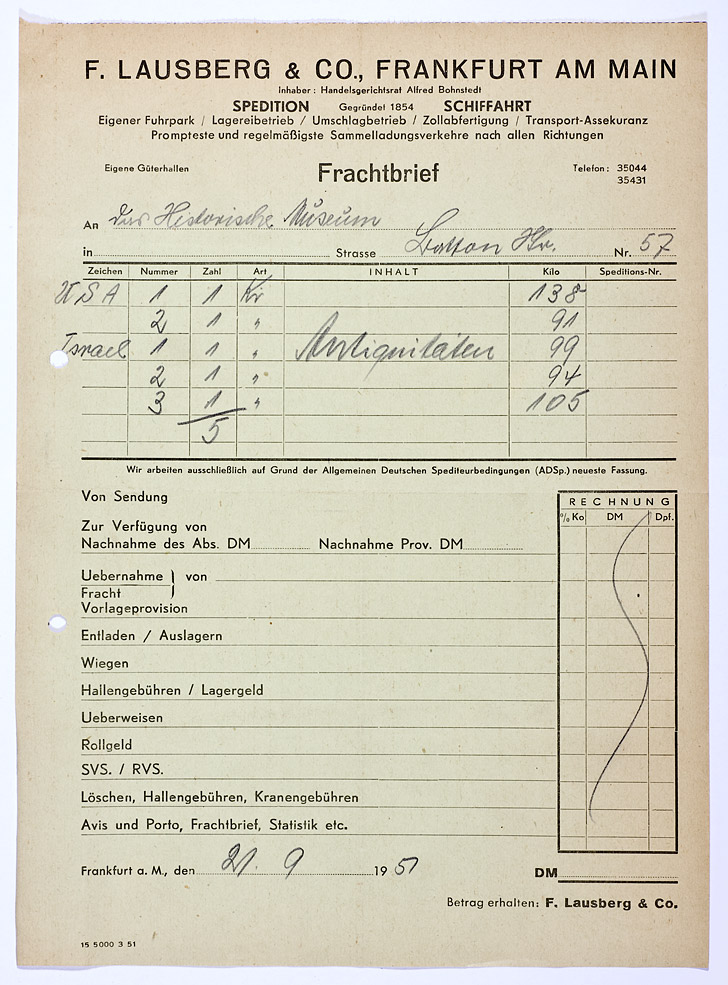 F. LAUSBERG & CO., FRANKFURT AM MAIN
Inhaber: Handelsgerichtsrat Alfred Bohnstedt
SPEDITION Gegründet 1854 SCHIFFAHRT
Eigener Fuhrpark / Lagereibetrieb / Umschlagbetrieb / Zollabfertigung / Transport-Assekuranz
Prompteste und regelmäßigste Sammelladungsverkehre nach allen Richtungen
Eigene Güterhallen Frachtbrief Telefon: 35044
35431
An das Historische Museum
in Strasse Nr. 57
Zeichen Nummer Zahl Art INHALT Kilo Speditions-Nr.
USA 1 1 Ki 138
2 1 " 91
Israel 1 1 " Antiquitäten 99
2 1 " 94
3 1 " 105
5
Wir arbeiten ausschließlich auf Grund der Allgemeinen Deutschen Spediteurbedingungen (ADSp.) neueste Fassung.
Von Sendung
RECHNUNG
% Ko DM Dpf.
Zur Verfügung von
Nachnahme des Abs. DM Nachnahme Prov. DM
Uebernahme } von
Fracht
Vorlageprovision
Entladen / Auslagern
Wiegen
Hallengebühren / Lagergeld
Ueberweisen
Rollgeld
SVS. / RVS.
Löschen, Hallengebühren, Kranengebühren
Avis und Porto, Frachtbrief, Statistik etc.
Frankfurt a. M., den 21. 9 1951 DM
Betrag erhalten: F. Lausberg & Co.
15 5000 3 51